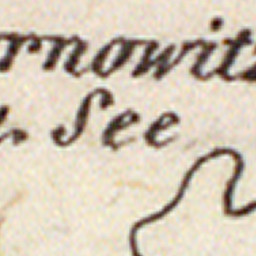 rnowitz
See